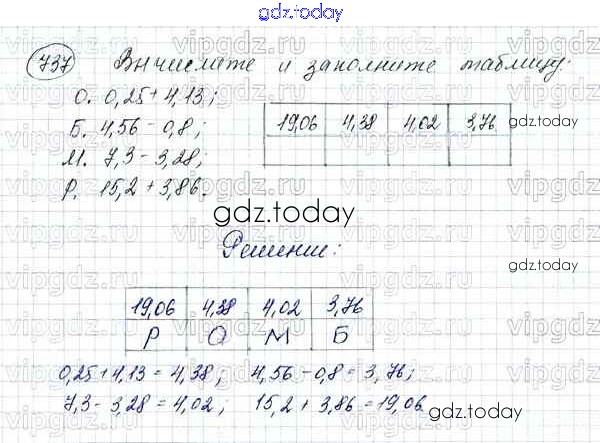 gdz.today
737 Вычислите и заполните таблицу:
О. 0,25 + 4,13;
Б. 4,56 - 0,8;
М. 7,3 - 3,28;
Р. 15,2 + 3,86.
19,06 4,38 4,02 3,76
gdz.today
gdz.today
Решение:
gdz.today
19,06 4,38 4,02 3,76
Р О М Б
0,25 + 4,13 = 4,38; 4,56 - 0,8 = 3,76;
7,3 - 3,28 = 4,02; 15,2 + 3,86 = 19,06.
gdz.today
vipgdz.ru